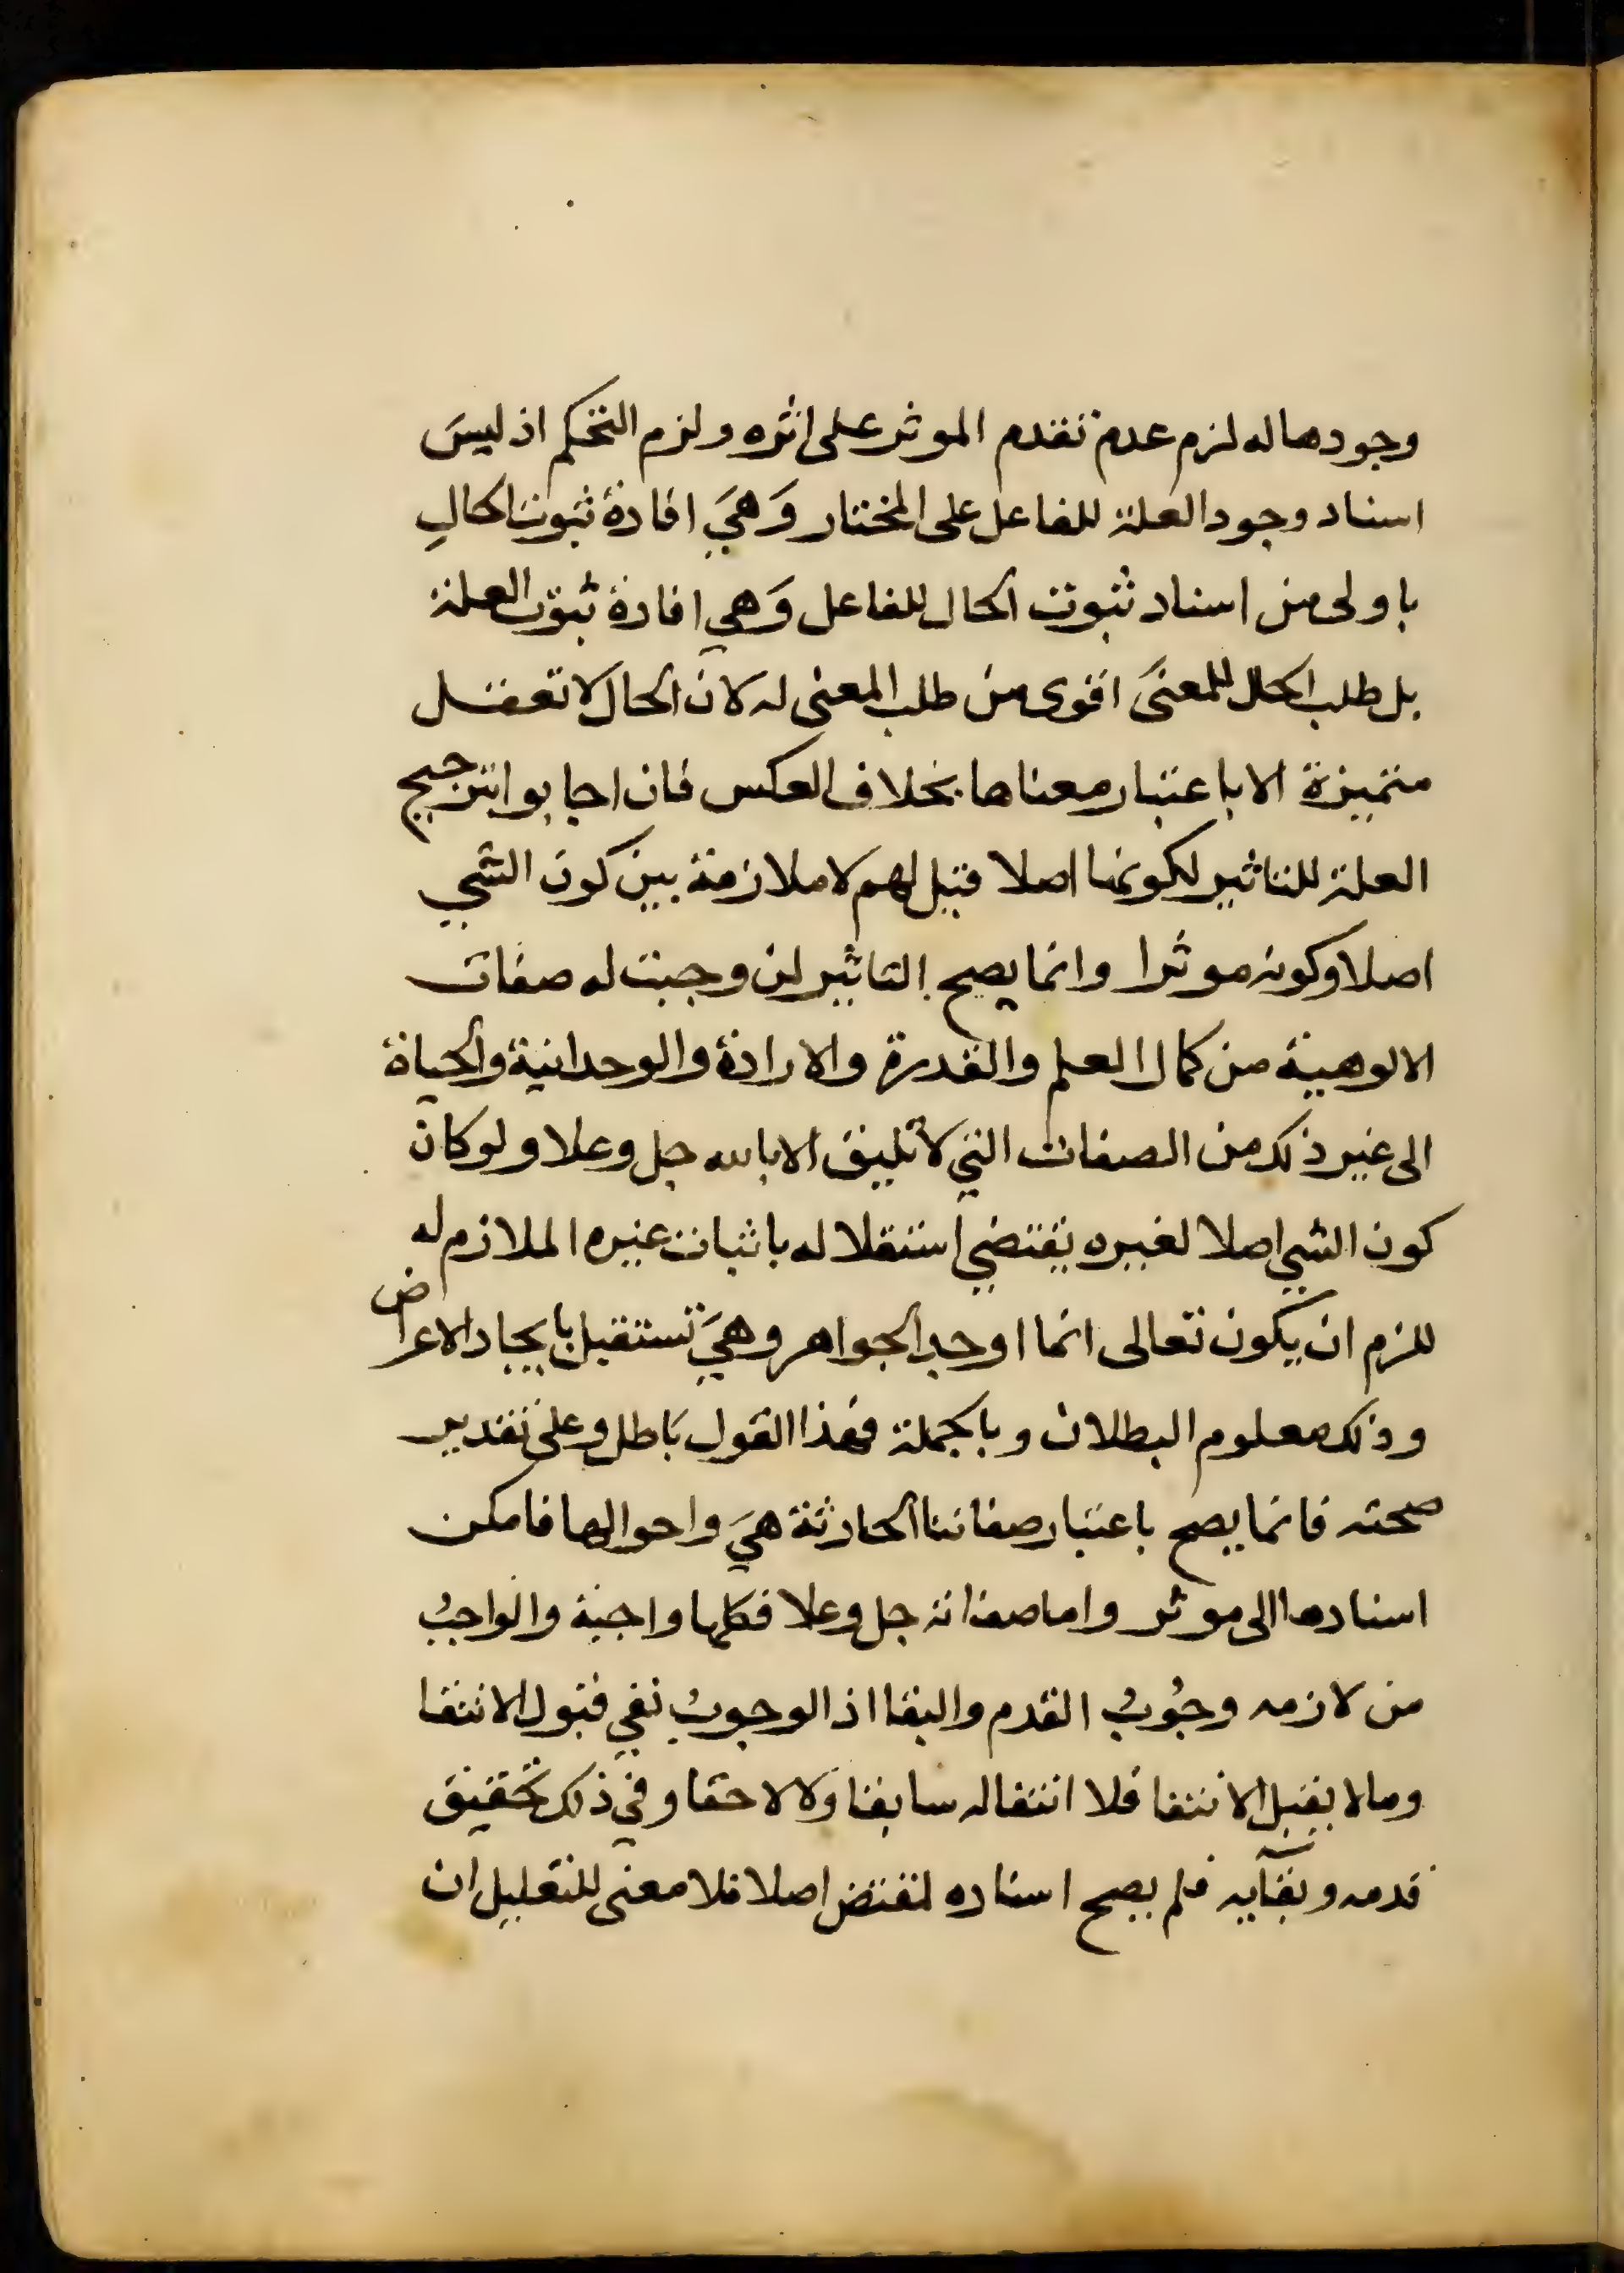 وجودها له لزم عدم تقدم الموثر على اثره ولزم التحكم اذ ليس
اسناد وجود العلة للفاعل على المختار وَهيَ افادة ثبوت الحالِ
باولى من اسناد ثبوت الحال للفاعل وَهي افادة ثبوت العلة
بل طلب الحال للمعنىَ اقوى من طلب المعنى له لان الحال لا تعقل
متميزة الا باعتبار معناها بخلاف العكس فان اجابوا بترجيح
العلة للتاثير لكونها اصلا قيل لهم لا ملازمة بين كون الشي
اصلا وكونه موثرا وانما يصح التاثير لمن وجبت له صفات
الالوهية من كمال العلم والقدرة والارادة والوحدانية والحياة
الى غير ذلك من الصفات التي لا تليق الا بالله جل وعلا ولو كان
كون الشي اصلا لغيره يقتضي استقلاله باثبات غيره الملازم له
للزم ان يكون تعالى انما اوجد الجواهر وهيَ تستقيل بايجاد الاعراض
وذلك معلوم البطلان وبالجملة فهذا القول باطل وعلى تقدير
صحته فانما يصح باعتبار صفاتنا الحادثة هيَ واحوالها فامكن
اسنادها الى موثر واما صفاته جل وعلا فكلها واجبة والواجبُ
من لازمه وجُوبُ القدم والبقا اذ الوجوبُ نفي قبول الانتفا
وما لا يقبل الانتفا فلا انتفا له سابقا وَلا لاحقا وفي ذلك تحقيق
قدمه وبقآيه فلم يصح اسناده لمقتض اصلا فلا معنى للتعليل ان